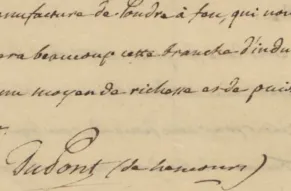 anufacture de Poudre à feu, qui nou
ra beaucoup cette branche d'indu
un moyen de richesse et de puis
Dupont (de Nemours)